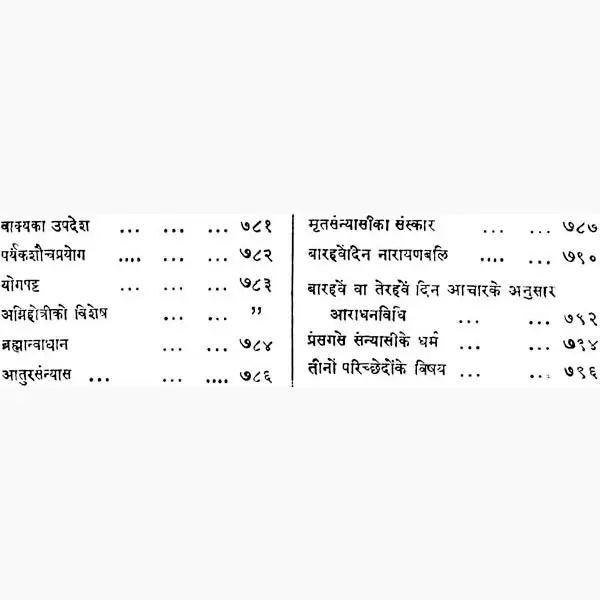 वाक्यका उपदेश ... ... ... ७८१
पर्यंकशौचप्रयोग .... ... ... ७८२
योगपट्ट ... ... ... ७८३
अग्निहोत्रीको विशेष ... ... "
ब्रह्मान्वाधान ... ... ७८४
आतुरसंन्यास ... ... .... ७८६
मृतसंन्यासीका संस्कार ... ... ७८७
बारहवेंदिन नारायणबलि .... ... ७९०
बारहवें वा तेरहवें दिन आचारके अनुसार
आराधनविधि ... ... ७९२
प्रंसगसे संन्यासीके धर्म ... ... ७९४
तीनों परिच्छेदोंके विषय ... ... ७९६